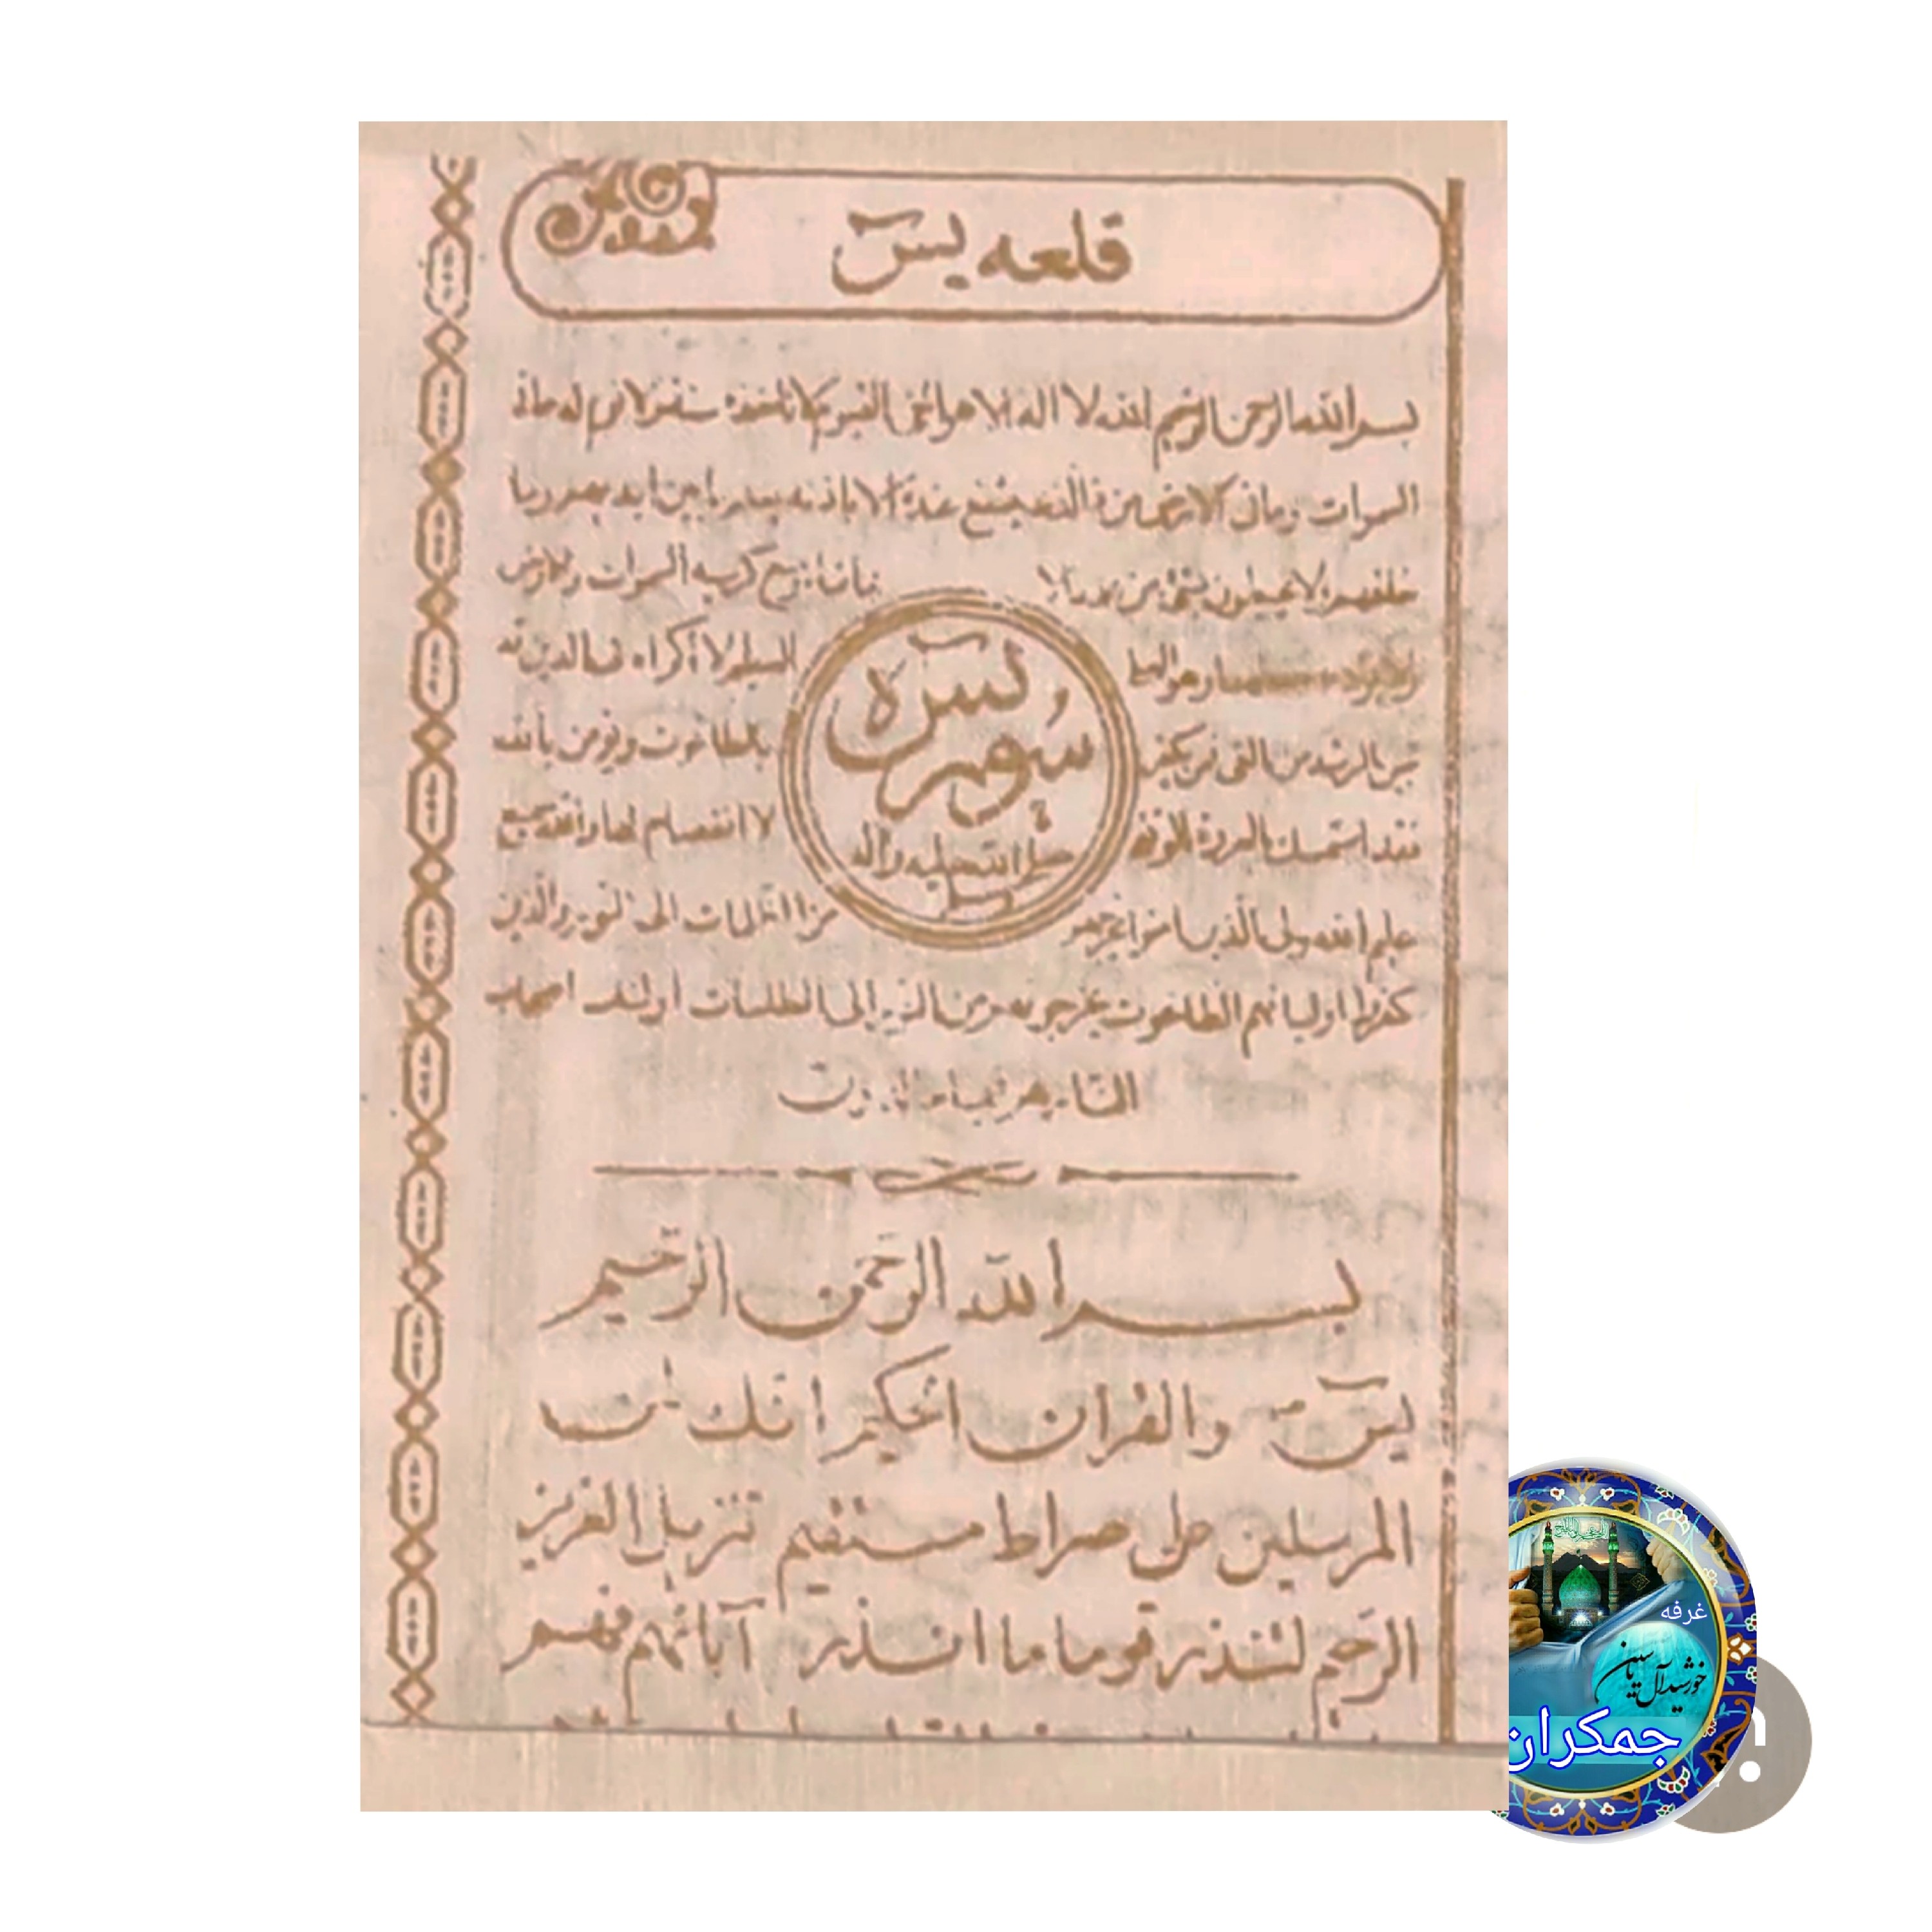 قلعه يسٓ
بسم الله الرحمن الرحيم الله لا اله الا هو الحى القيوم لا تاخذه سنة ولا نوم له مافى
السموات ومافى الارض من ذا الذى يشفع عنده الا باذنه يعلم ما بين ايديهم وما
خلفهم ولا يحيطون بشئ من علمه الا بماشاء وسع كرسيه السموات والارض
ولا يؤده حفظهما وهو العلى العظيم لا اكراه فى الدين قد
تبين الرشد من الغى فمن يكفر بالطاغوت ويؤمن بالله
فقد استمسك بالعروة الوثقى لا انفصام لها والله سميع
عليم الله ولى الذين امنوا يخرجهم من الظلمات الى النور والذين
كفروا اوليائهم الطاغوت يخرجونهم من النور الى الظلمات اولئك اصحاب
النار هم فيها خالدون
سوره يسٓ
صلى الله عليه واله
وسلم
بسم الله الرحمن الرحيم
يسٓ والقران الحكيم انك لمن
المرسلين على صراط مستقيم تنزيل العزيز
الرحيم لتنذر قوما ما انذر آبائهم فهم
غرفه
خورشید آل یاسین
جمکران